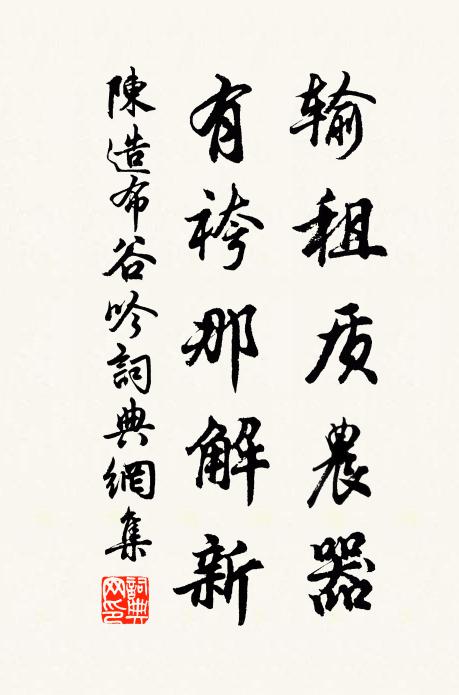 输租质農器
有袴那解新
陳造布谷吟詞典網集
詞典网印